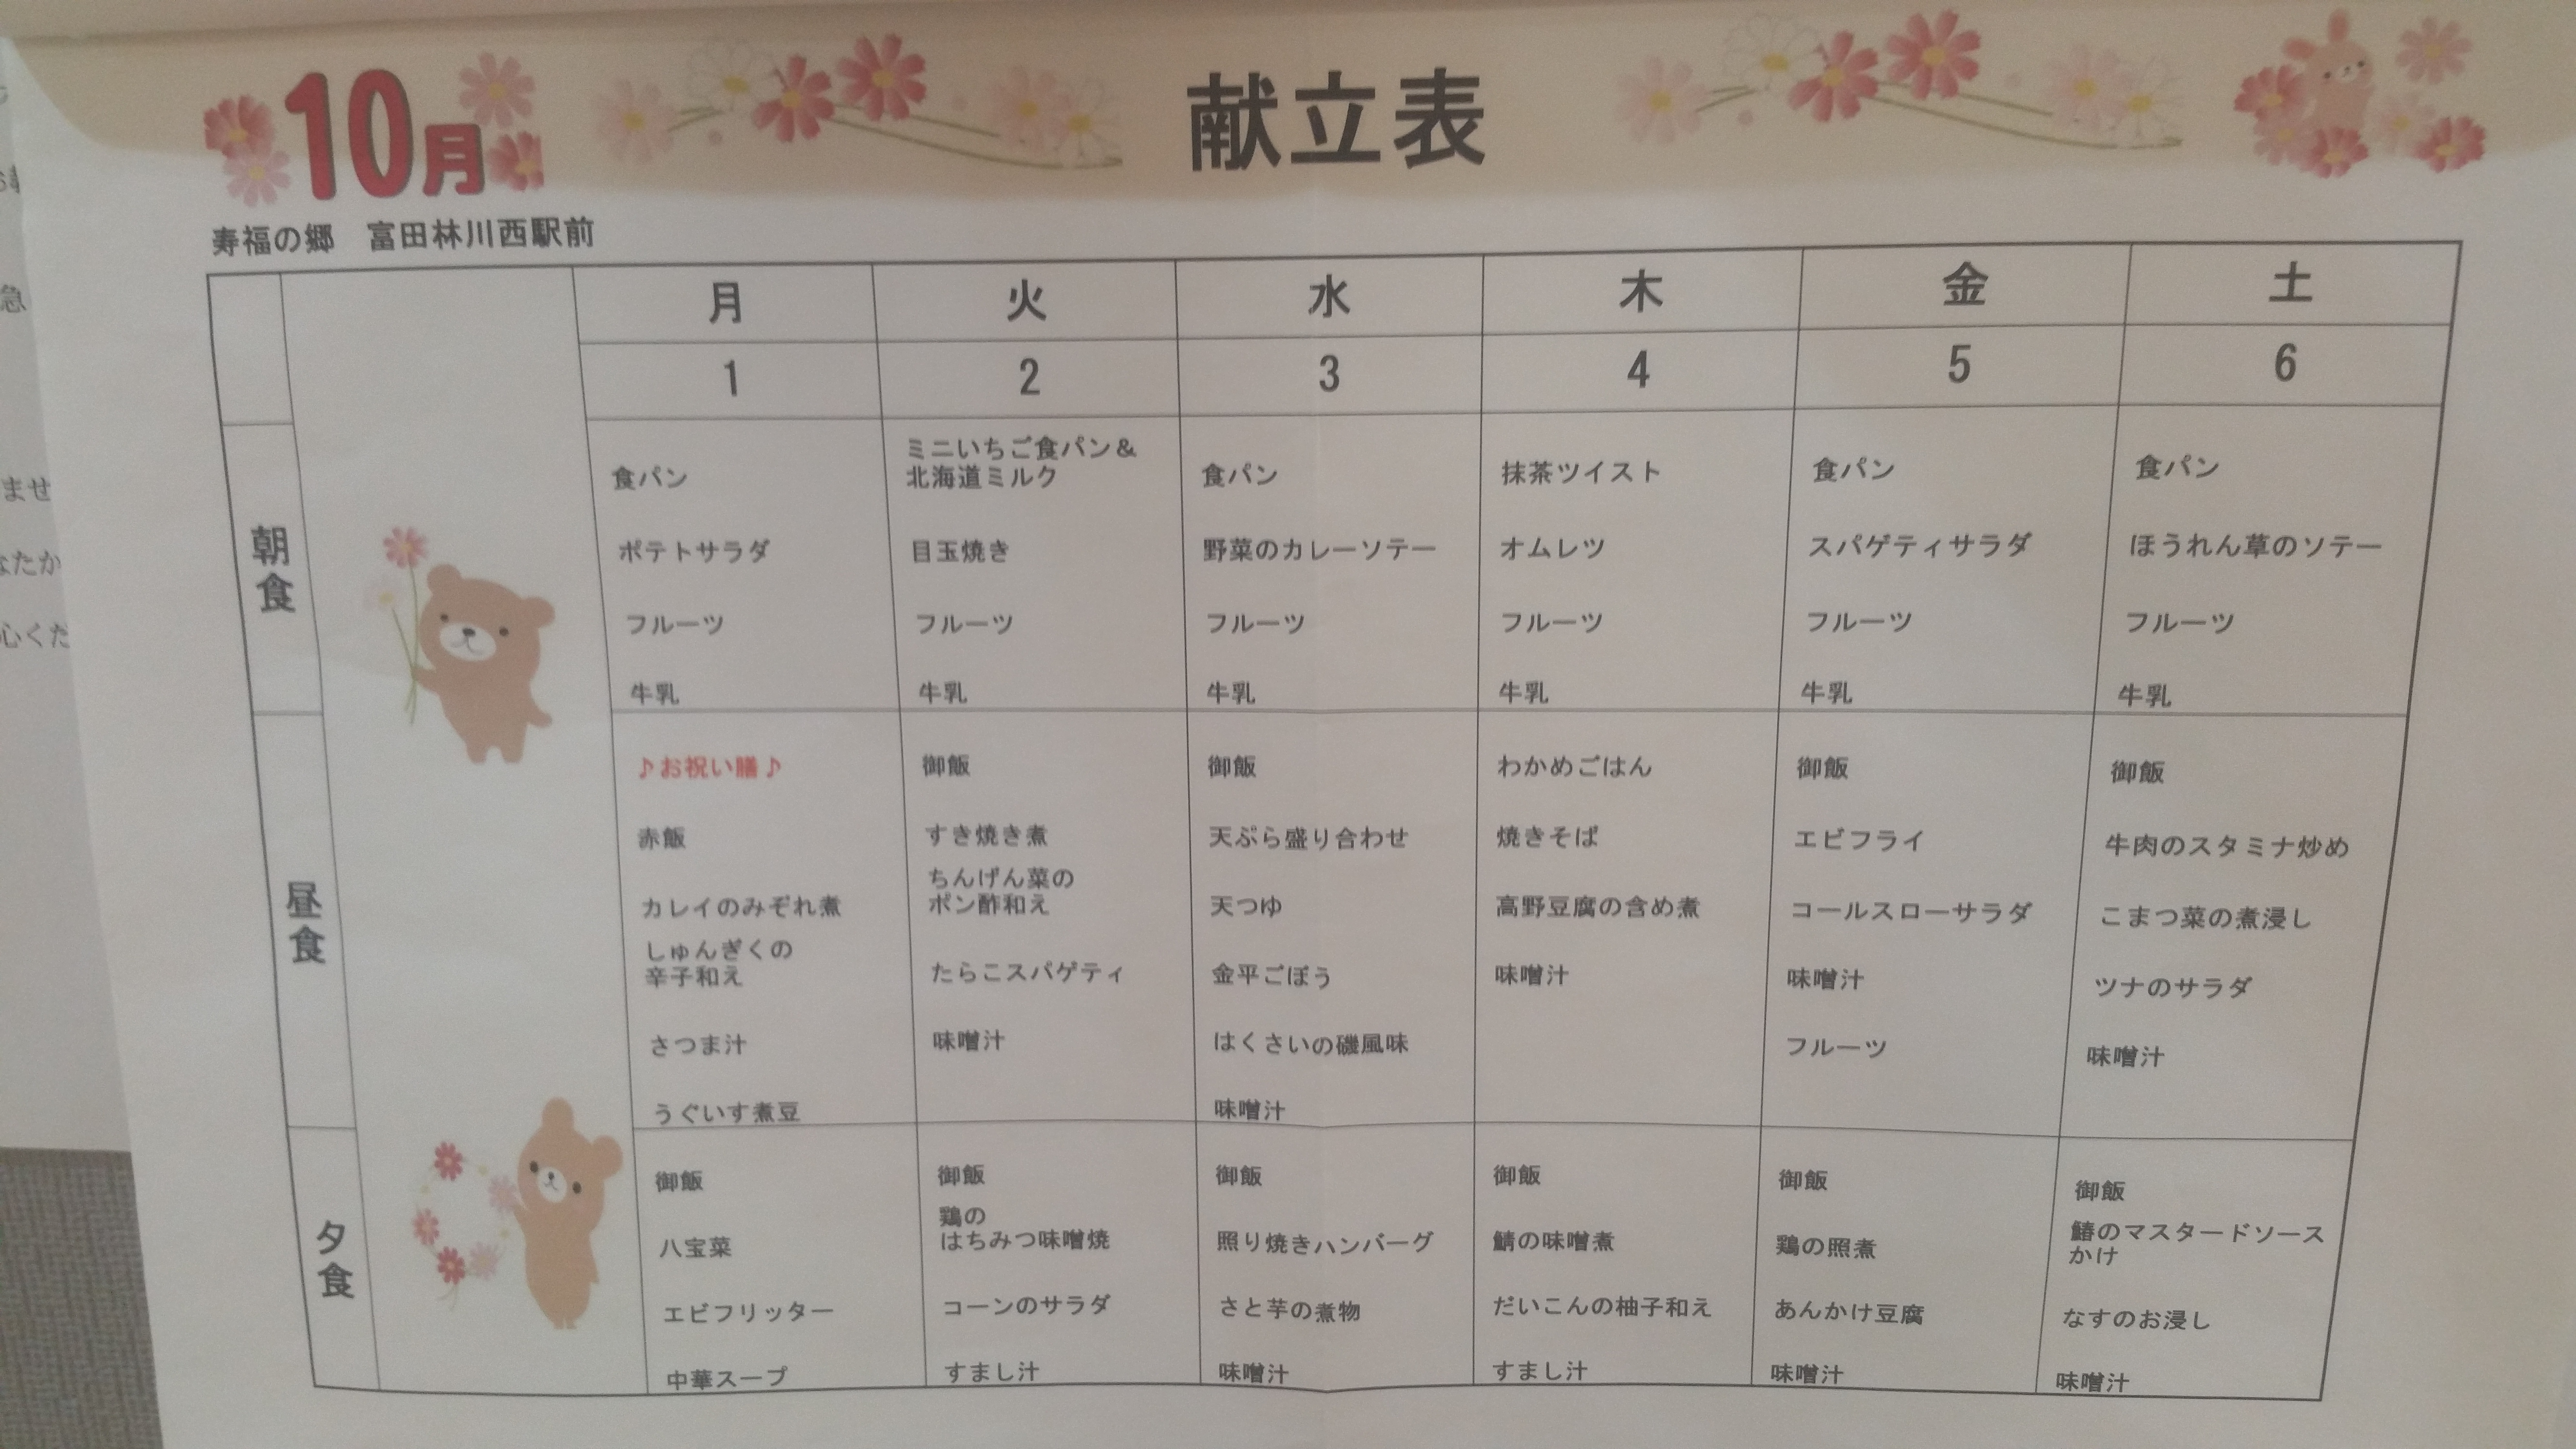 10月
献立表
寿福の郷 富田林川西駅前
月 火 水 木 金 土
1 2 3 4 5 6
朝食
食パン
ポテトサラダ
フルーツ
牛乳
ミニいちご食パン&
北海道ミルク
目玉焼き
フルーツ
牛乳
食パン
野菜のカレーソテー
フルーツ
牛乳
抹茶ツイスト
オムレツ
フルーツ
牛乳
食パン
スパゲティサラダ
フルーツ
牛乳
食パン
ほうれん草のソテー
フルーツ
牛乳
昼食
♪お祝い膳♪
赤飯
カレイのみぞれ煮
しゅんぎくの
辛子和え
さつま汁
うぐいす煮豆
御飯
すき焼き煮
ちんげん菜の
ポン酢和え
たらこスパゲティ
味噌汁
御飯
天ぷら盛り合わせ
天つゆ
金平ごぼう
はくさいの磯風味
味噌汁
わかめごはん
焼きそば
高野豆腐の含め煮
味噌汁
御飯
エビフライ
コールスローサラダ
味噌汁
フルーツ
御飯
牛肉のスタミナ炒め
こまつ菜の煮浸し
ツナのサラダ
味噌汁
夕食
御飯
八宝菜
エビフリッター
中華スープ
御飯
鶏の
はちみつ味噌焼
コーンのサラダ
すまし汁
御飯
照り焼きハンバーグ
さと芋の煮物
味噌汁
御飯
鯖の味噌煮
だいこんの柚子和え
すまし汁
御飯
鶏の照煮
あんかけ豆腐
味噌汁
御飯
鰆のマスタードソース
かけ
なすのお浸し
味噌汁
急
ませ
なたか
心くだ